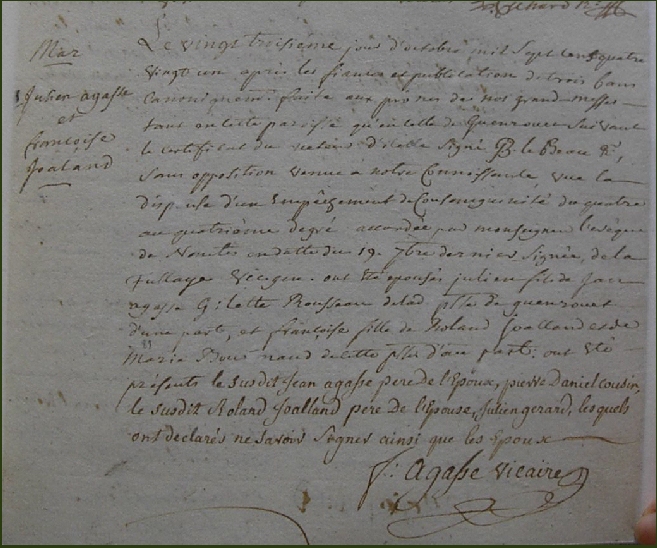 Mar
Julien agasse
et
francoise
Joaland
Le vingt troisieme jour d'octobre mil Sept cent quatre
vingt un apres les fiances et publication de trois bans
canoniquem: faite aux prones de nos grand messes
tant en cette paroisse qu'en celle de Guenrouet Suivant
le certificat du recteur d'icelle Signé le Beau
Sans opposition venue a notre Connoissance, vue la
dispense d'un Empêchement de Consanguinité du quatre
au quatrième degré accordée par monseigneur l'eveque
de Nantes en datte du 19. 7bre dernier Signée, de la
Vicgen. ont été epousés julien fils de Jan
agasse Gilette Rousseau de lad. psse de guenrouet
d'une part, et françoise fille de Roland Joalland et de
Marie de cette psse d'au part: ont été
présents le susdit Jean agasse pere de l'Epoux, pierre Daniel cousin,
le susdit Roland Joalland pere De l'Epouse, Julien gerard, les quels
ont declarés ne Savoir Signer ainsi que les Epoux
J: Agasse Vicaire